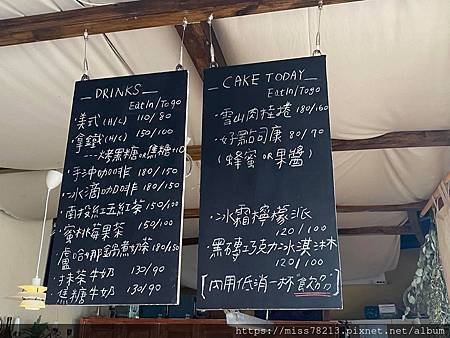 DRINKS
EatIn/Togo
美式(H/C) 110/80
拿鐵(H/C) 150/100
---烤黑糖OR焦糖+10
手沖咖啡 180/150
冰滴咖啡 180/150
南投紅玉紅茶 150/100
蜜桃莓果茶 150/100
鍋煮奶茶 180/150
抹茶牛奶 130/90
焦糖牛奶 130/90
CAKE TODAY
EatIn/Togo
雪山肉桂捲 180/160
好點司康 80/70
(蜂蜜OR果醬)
冰霜檸檬派
120/100
黑磚巧克力冰淇淋
120/100
[內用低消一杯"飲品"]
https://miss78213.pixnet.net/album